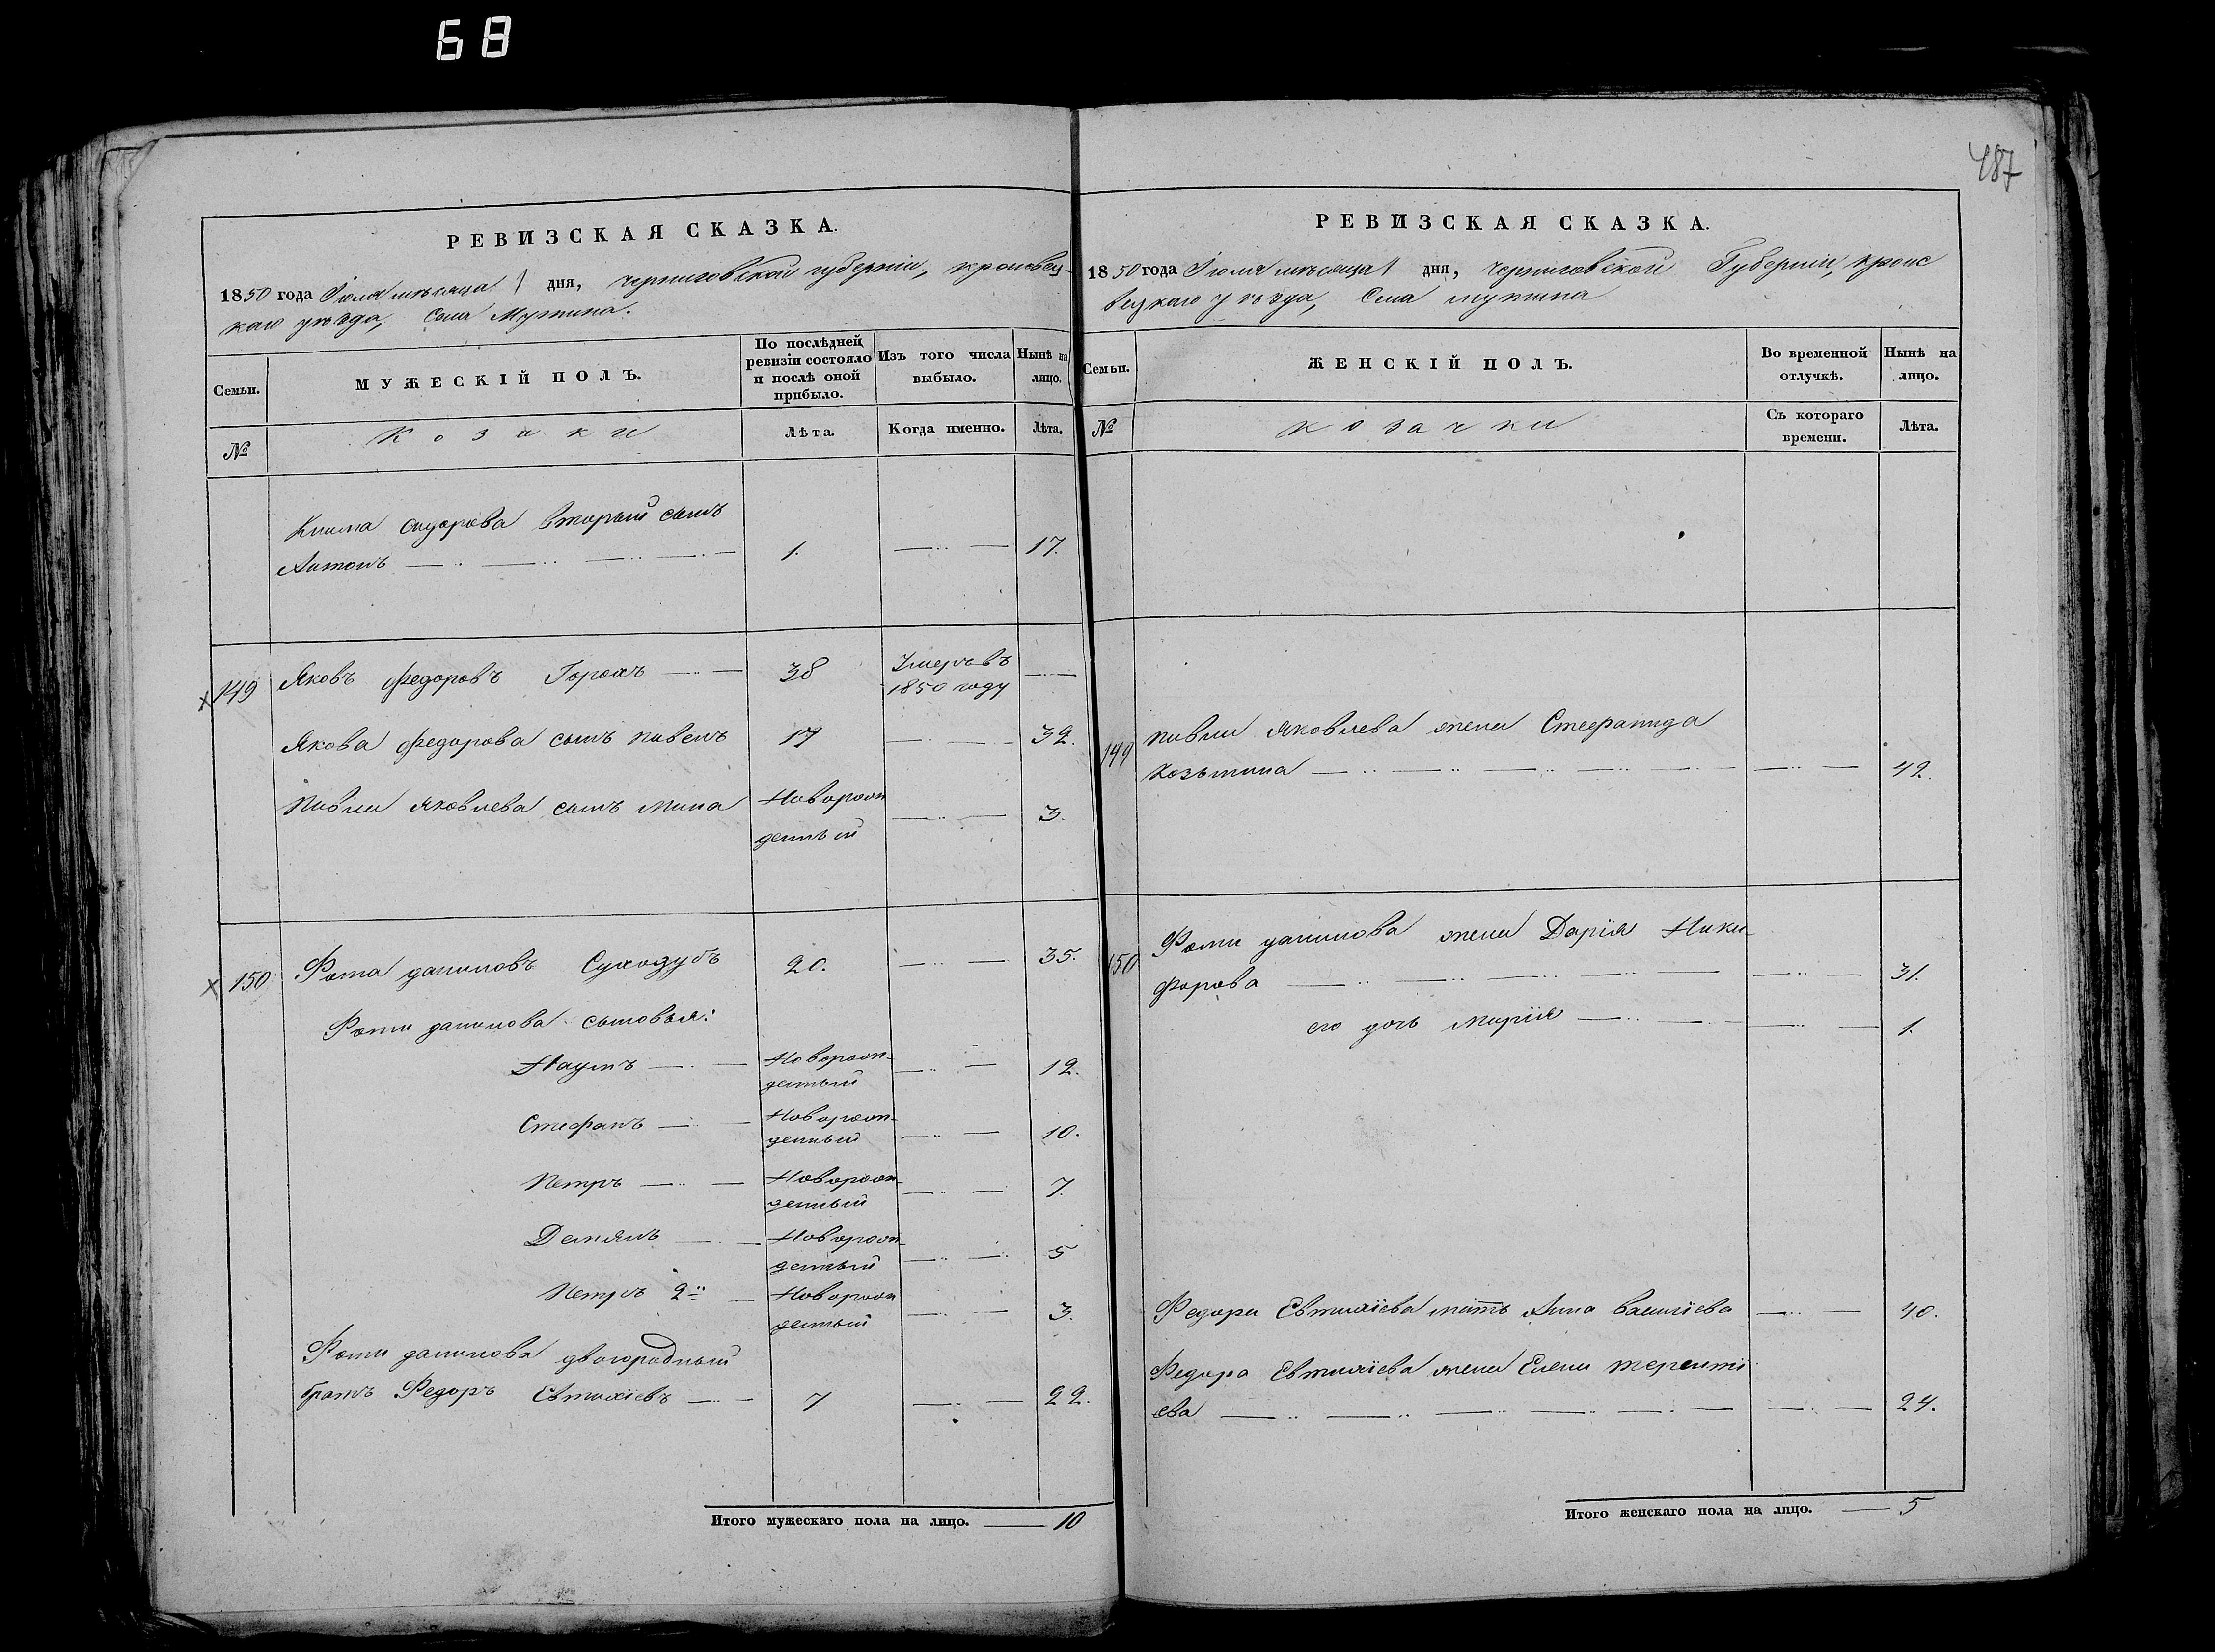 68
487
РЕВИЗСКАЯ СКАЗКА.
1850 года Іюля мѣсяца 1 дня, Черниговской губерніи, кролевец-
каго уѣзда, Села Мутина.
Семьи.
МУЖЕСКІЙ ПОЛЪ.
По послѣдней ревизіи состояло и послѣ оной прибыло.
Изъ того числа выбыло.
Нынѣ на лицо.
№
Козаки
Лѣта.
Когда именно.
Лѣта.
Сидорова вторый сынъ
Антонъ 1. 17.
149 Яковъ Федоровъ Горохъ 38 Умеръ въ 1850 году
Якова Федорова сынъ Павелъ 17 32.
Павла Яковлева сынъ Мина Новорож
денный 3.
150 Фома Даниловъ Суходубъ 20. 35.
Фомы Данилова сыновья:
Наумъ Новорож-
денный 12.
Стефанъ Новорож-
денный 10.
Петръ Новорож-
денный 7.
Демянъ Новорож-
денный 5
Петръ 2й Новорож
денный 3.
Фомы Данилова двоюродный
братъ Федоръ Евтихіевъ 7 22.
Итого мужескаго пола на лицо. 10
РЕВИЗСКАЯ СКАЗКА.
1850 года Іюля мѣсяца 1 дня, Черниговской Губерніи, Кроле
вецкаго уѣзда, Села Мутина
Семьи.
ЖЕНСКІЙ ПОЛЪ.
Во временной отлучкѣ.
Нынѣ на лицо.
№
Козачки
Съ котораго времени.
Лѣта.
149 Павла Яковлева жена Стефанида
Козьмина 42.
150 Фомы Данилова жена Дарія Ники-
форова 31.
его дочь Марія 1.
Федора Евтихіева мать Анна Василіева 40.
Федора Евтихіева жена Елена Теренті
ева 24.
Итого женскаго пола на лицо. 5